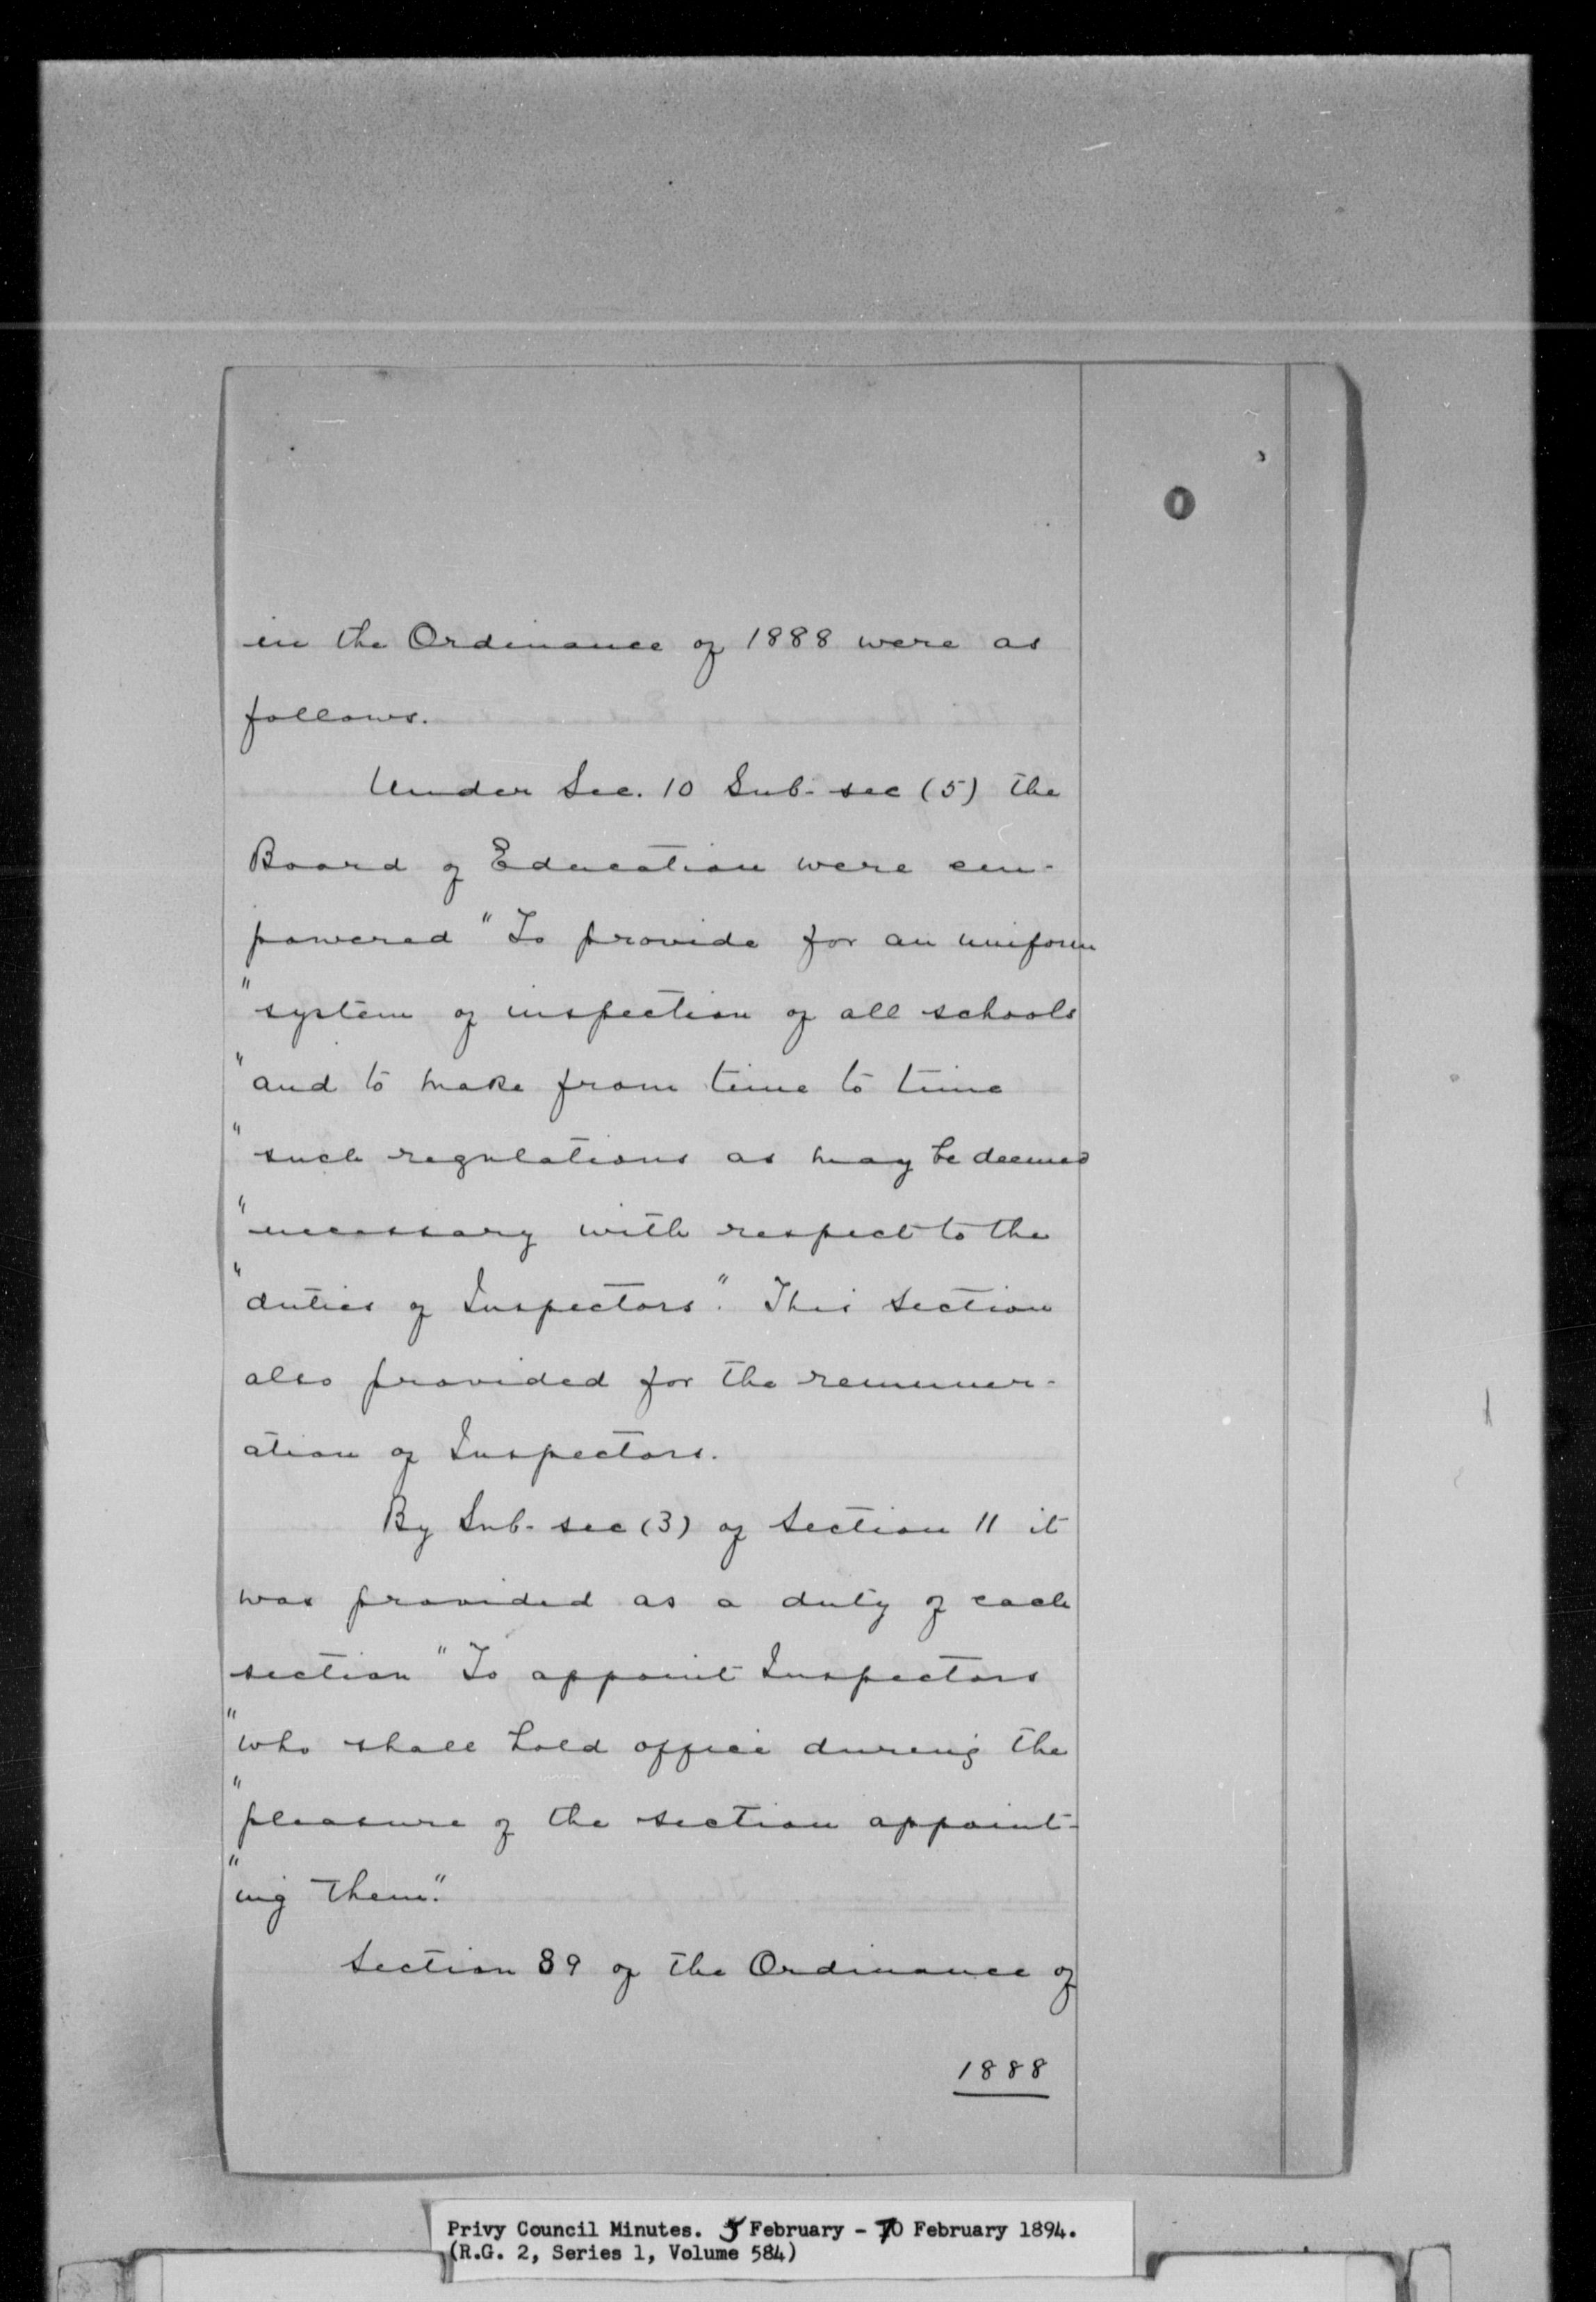 in the Ordinance of 1888 were as
follows.
Under Sec. 10 Sub-sec (5) the
Board of Education were em-
powered "To provide for an uniform
"system of inspection of all schools
"and to make from time to time
"such regulations as may be deemed
"necessary with respect to the
"duties of Inspectors". This section
also provided for the remuner-
ation of Inspectors.
By Sub-sec (3) of Section 11 it
was provided as a duty of each
section "To appoint Inspectors
"who shall hold office during the
"pleasure of the section appoint-
"ing them".
Section 89 of the Ordinance of
1888
Privy Council Minutes. 5 February - 10 February 1894.
(R.G. 2, Series 1, Volume 584)